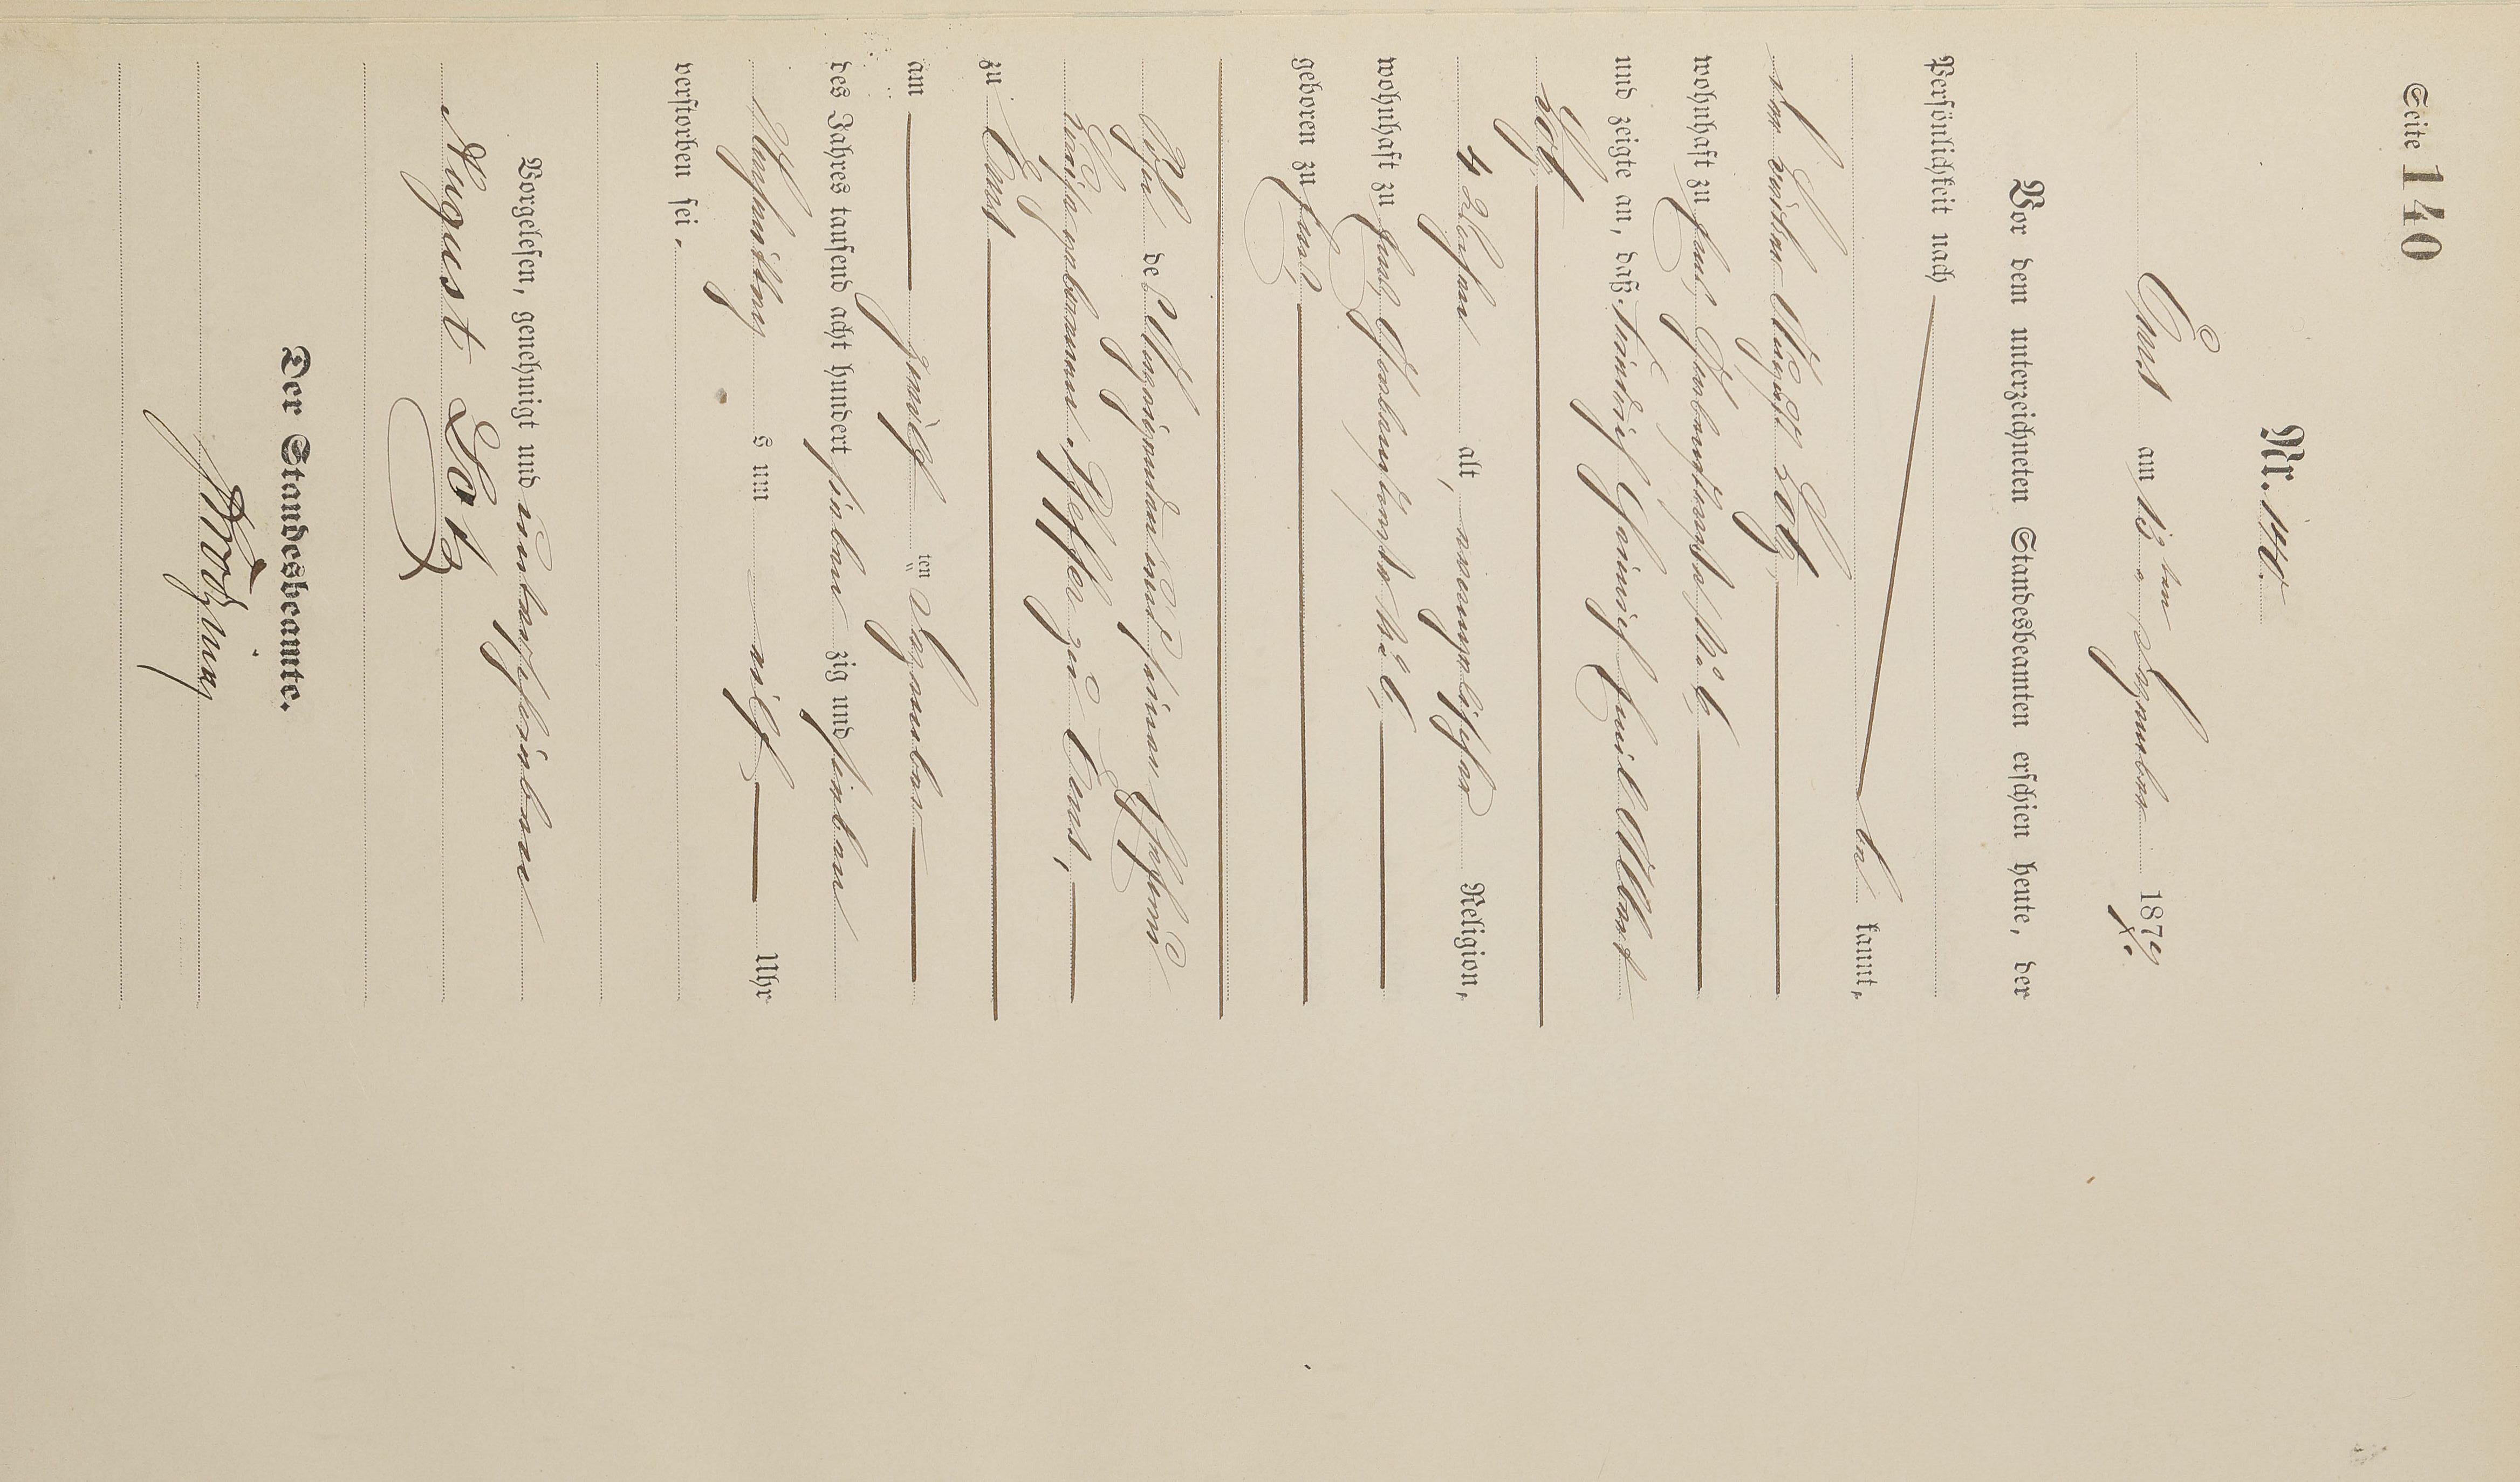 Seite 140
Nr. 140.
Ems am 13ten Dezember 1877.
Vor dem unterzeichneten Standesbeamten erschien heute, der
Persönlichkeit nach
be kannt,
August Lotz
wohnhaft zu Ems,
und zeigte an, daß Friedrich Heinrich Emil Albert
Lotz
4 Wochen alt, evangelischer Religion,
wohnhaft zu Ems,
geboren zu Ems,
Sohn des Anzeigenden und seiner Ehefrau
Luise geborenen Pfeffer zu Ems,
zu Ems
am zwölf ten Dezember
des Jahres tausend acht hundert sieben zig und sieben
Nachmittags um elf Uhr
verstorben sei.
Vorgelesen, genehmigt und unterschrieben
August Lotz
Der Standesbeamte.